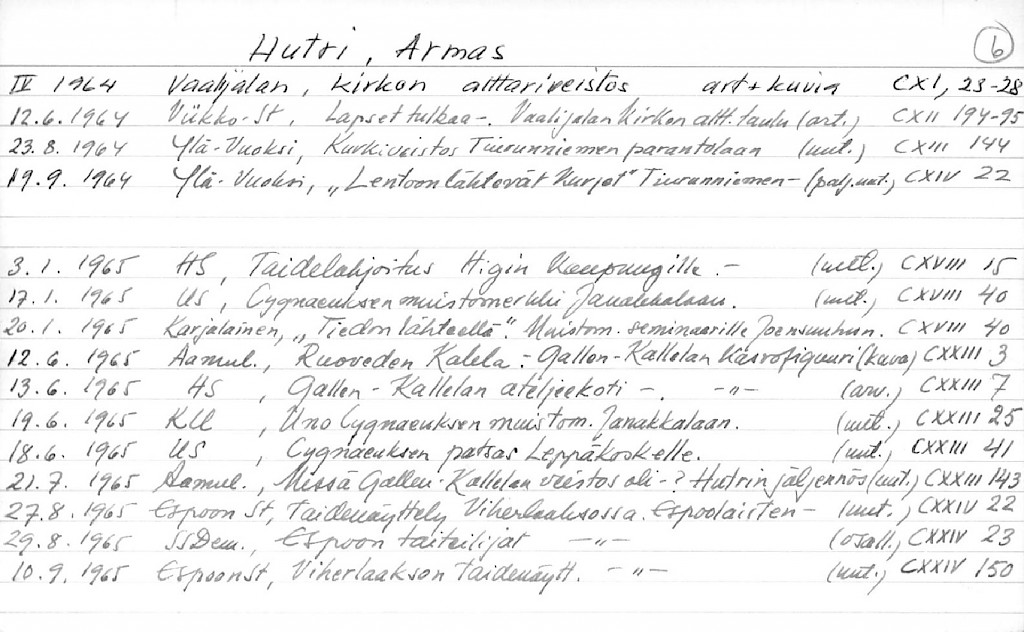 Hutri, Armas
6
IV 1964 Vaalijalan, kirkon alttariveistos art + kuvia CXI, 23-28
12.6.1964 Viikko-St, Lapset tutkaa-. Vaalijalan Kirkon altt.taulu (art.) CXII 194-95
23.8.1964 Ylä-Vuoksi, Kurkiveistos Tiurunniemen parantolaan (uut.) CXIII 144
19.9.1964 Ylä-Vuoksi, „Lentoon lähtevät Kurjet" Tiurunniemen- (palj.uut.) CXIV 22
3.1.1965 HS, Taidelahjoitus Hlgin Kaupungille.- (uut.) CXVIII 15
17.1.1965 US, Cygnaeuksen muistomerkki Janakkalaan. (uut.) CXVIII 40
20.1.1965 Karjalainen, „Tiedon lähteellä". Muistom. seminaarille Joensuuhun. CXVIII 40
12.6.1965 Aamul., Ruoveden Kalela.- Gallen-Kallelan Kasvofiguuri (kuva) CXXIII 3
13.6.1965 HS, Gallen-Kallelan ateljeekoti -. -"- (arv.) CXXIII 7
19.6.1965 KU, Uno Cygnaeuksen muistom. Janakkalaan. (uut.) CXXIII 25
18.6.1965 US, Cygnaeuksen patsas Leppäkoskelle. (uut.) CXXIII 41
21.7.1965 Aamul., Missä Gallen-Kallelan veistos oli-? Hutrin jäljennös (uut.) CXXIII 143
27.8.1965 Espoon St, Taidenäyttely Viherlaaksossa. Espoolaisten- (uut.) CXXIV 22
29.8.1965 SSDem., Espoon taiteilijat -"- (osall.) CXXIV 23
10.9.1965 EspoonSt, Viherlaakson Taidenäytt. -"- (uut.) CXXIV 150